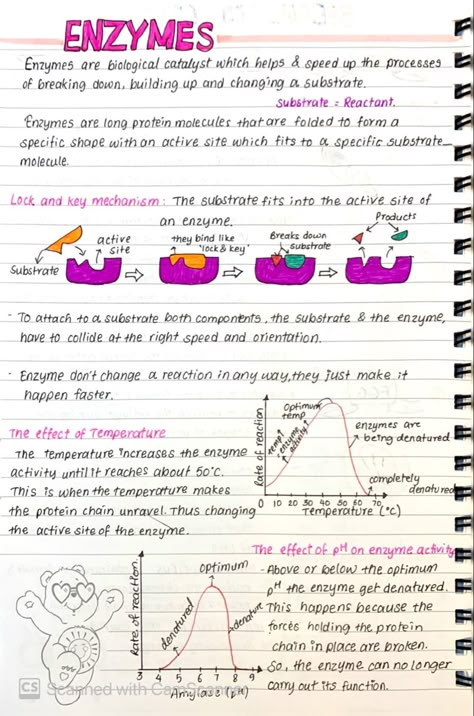 ENZYMES
Enzymes are biological catalyst which helps & speed up the processes
of breaking down, building up and changing a substrate.
substrate = Reactant.
Enzymes are long protein molecules that are folded to form a
specific shape with an active site which fits to a specific substrate
molecule.
Lock and key mechanism: The substrate fits into the active site of
an enzyme.
Products
active
site
they bind like
'lock & key'
Breaks down
substrate
Substrate
- To attach to a substrate both components, the substrate & the enzyme,
have to collide at the right speed and orientation.
- Enzyme don't change a reaction in any way, they just make it
happen faster.
The effect of Temperature
The temperature increases the enzyme
activity until it reaches about 50°C.
This is when the temperature makes
the protein chain unravel. Thus changing
the active site of the enzyme.
Rate of reaction
optimum
temp
temp↑
enzyme
activity↑
enzymes are
being denatured
completely
denatured
0 10 20 30 40 50 60 70
Temperature (°C)
The effect of pH on enzyme activity
- Above or below the optimum
pH the enzyme get denatured.
This happens because the
forces holding the protein
chain in place are broken.
So, the enzyme can no longer
carry out its function.
Rate of reaction.
optimum
denatured
denature
3 4 5 6 7 8 9
Amylase (pH)
CS Scanned with CamScanner